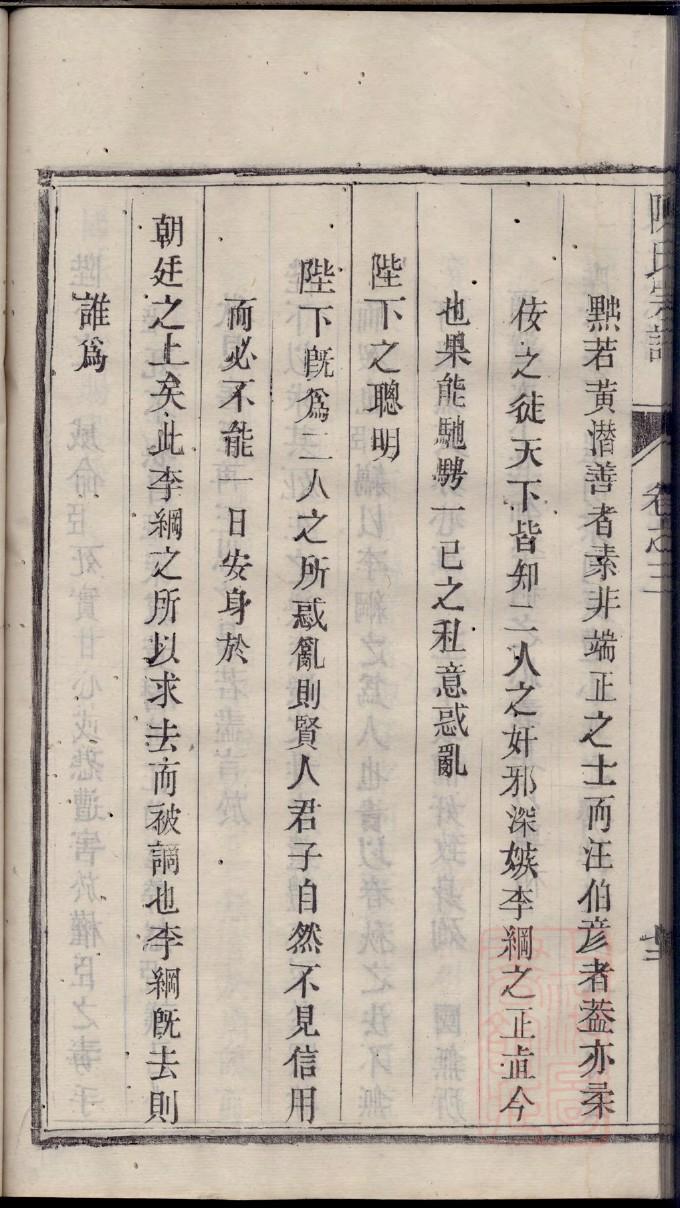 黜若黃潛善者素非端正之士而汪伯彥者葢亦柔
佞之徒天下皆知二人之奸邪深嫉李綱之正直今
也果能馳騁一已之私意惑亂
陛下之聰明
陛下旣爲二人之所惑亂則賢人君子自然不見信用
而必不能一日安身於
朝廷之上矣此李綱之所以求去而被謫也李綱旣去則
誰爲
卷之三